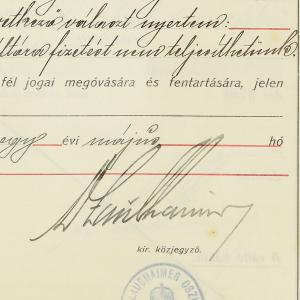 vetkező választ nyertem:
fizetést nem teljesíthetünk.
fél jogai megóvására és fentartására, jelen
egy évi május hó
kir. közjegyző.
LAUDHAIMER OSZ